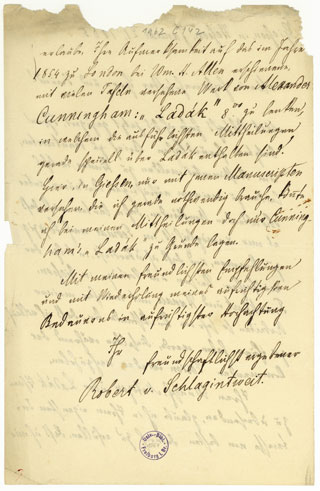 1912 G 142
erlaube, Ihre Aufmerksamkeit auf das im Jahre
1854 zu London bei Wm. H. Allen erschienene,
mit vielen Tafeln versehene Werk von Alexander
Cunningham: „Ladák" 8vo zu lenken,
in welchem die ausführlichsten Mittheilungen
gerade speciell über Ladak enthalten sind.
Hier, in Giessen, nur mit jenen Manuscripten
versehen, die ich gerade nothwendig brauche,
ich bei meinen Mittheilungen doch nur Cunning
ham's Ladák zu Grunde legen.
Mit meinen freundlichsten Empfehlungen
und mit Wiederholung meines aufrichtigsten
Bedauerns in aufrichtigster Hochachtung.
Ihr
freundschaftlichst ergebener
Robert v. Schlagintweit.